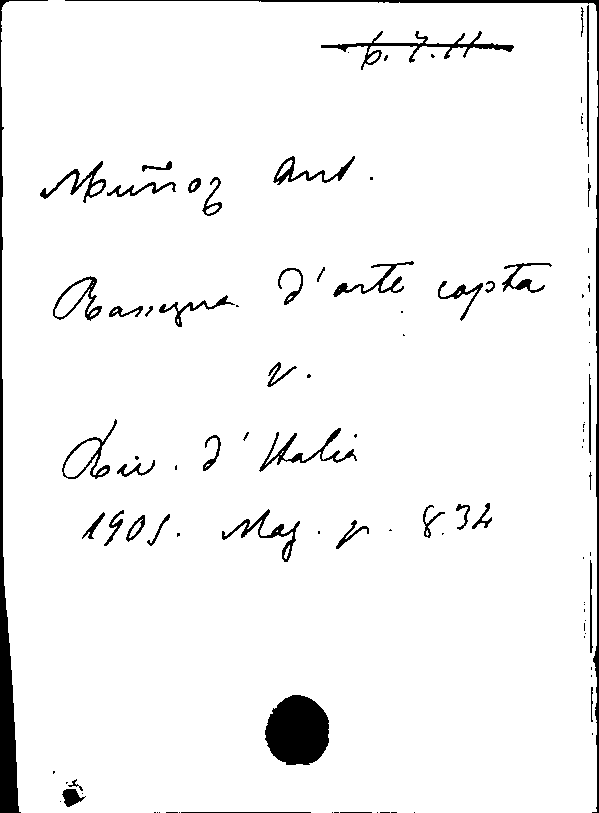 6.7.11
Muñoz Ant.
Rassegna d'arte copta
v.
Riv. d'Italia
1905. Mag. p. 834